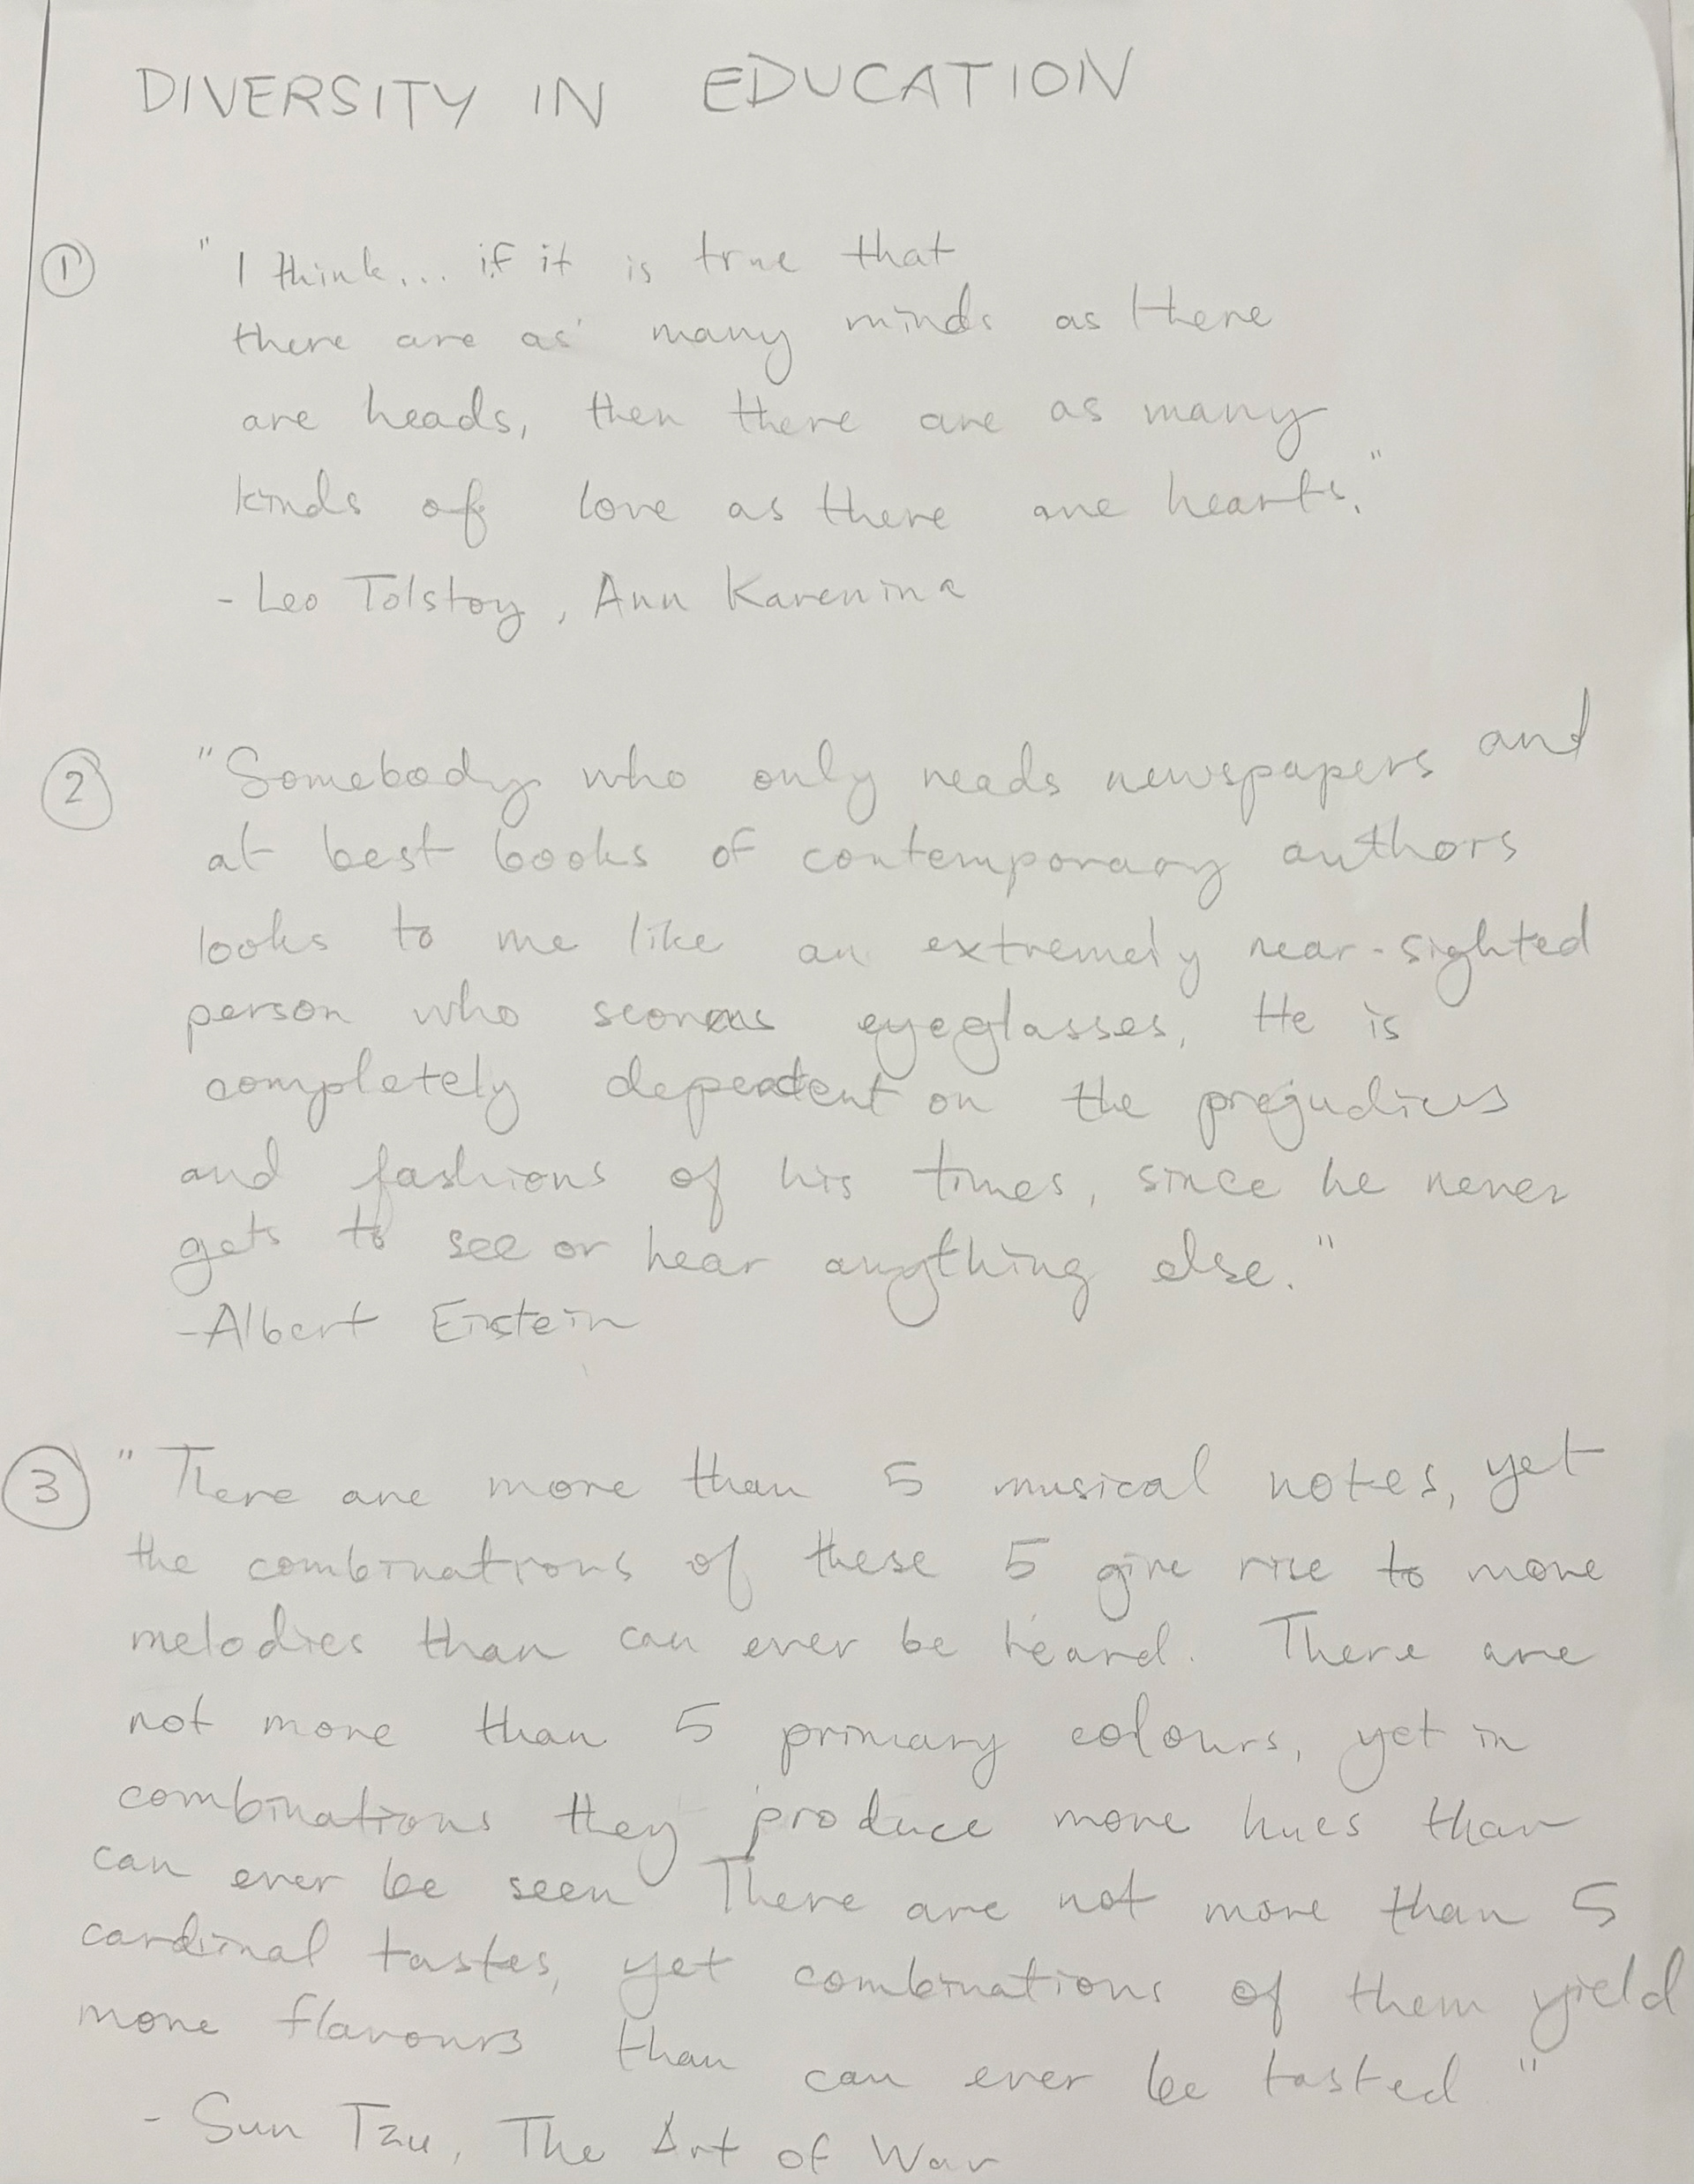 DIVERSITY IN EDUCATION
① "I think... if it is true that
there are as many minds as there
are heads, then there are as many
kinds of love as there are hearts."
- Leo Tolstoy, Ann Karenina
② "Somebody who only reads newspapers and
at best books of contemporary authors
looks to me like an extremely near-sighted
person who scorns eyeglasses, He is
completely dependent on the prejudices
and fashions of his times, since he never
gets to see or hear anything else."
-Albert Eistein
③ "There are more than 5 musical notes, yet
the combinations of these 5 give rise to more
melodies than can ever be heard. There are
not more than 5 primary colours, yet in
combinations they produce more hues than
can ever be seen There are not more than 5
cardinal tastes, yet combinations of them yield
more flavours than can ever be tasted"
- Sun Tzu, The Art of War